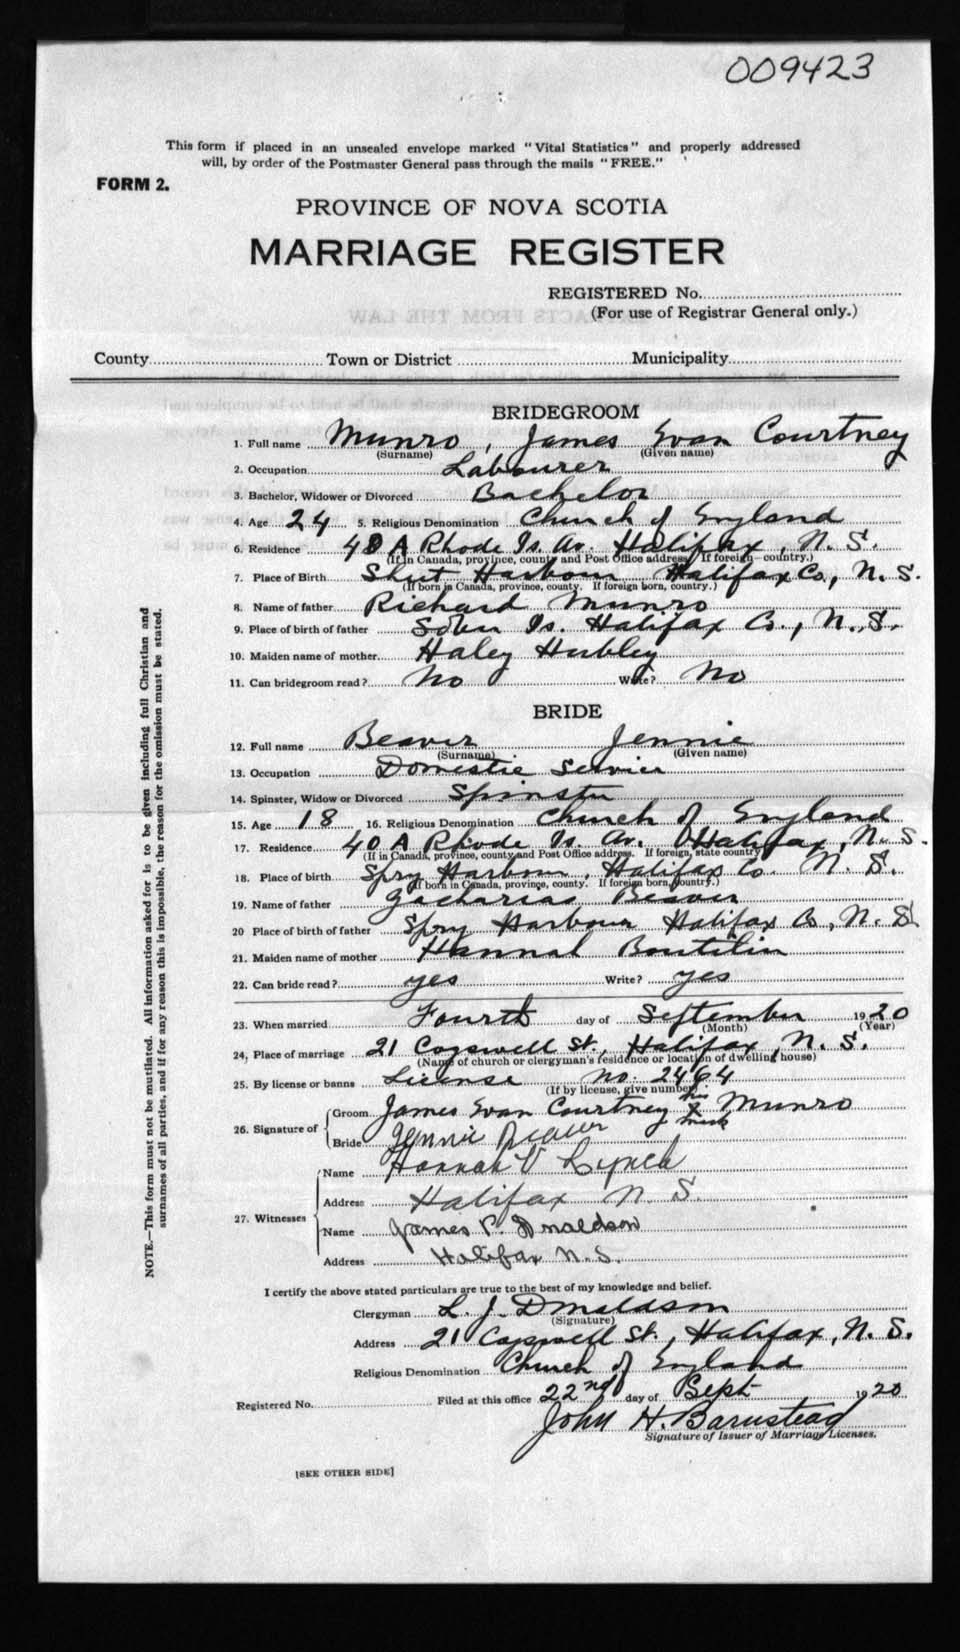 009423
This form if placed in an unsealed envelope marked "Vital Statistics" and properly addressed
will, by order of the Postmaster General pass through the mails "FREE."
FORM 2.
PROVINCE OF NOVA SCOTIA
MARRIAGE REGISTER
REGISTERED No.
(For use of Registrar General only.)
County Town or District Municipality
BRIDEGROOM
1. Full name Munro, James Evan Courtney
(Surname) (Given name)
2. Occupation Labourer
3. Bachelor, Widower or Divorced Bachelor
4. Age 24 5. Religious Denomination Church of England
6. Residence 40 A Rhode Is. Av. Halifax, N. S.
(If in Canada, province, county and Post Office address. If foreign country.)
7. Place of Birth Harbour Halifax Co., N. S.
(If born in Canada, province, county. If foreign born, country.)
8. Name of father Richard Munro
9. Place of birth of father Is. Halifax Co., N. S.
10. Maiden name of mother Haley Hubley
11. Can bridegroom read? No Write? No
BRIDE
12. Full name Beaver Jennie
(Surname) (Given name)
13. Occupation Domestic
14. Spinster, Widow or Divorced Spinster
15. Age 18 16. Religious Denomination Church of England
17. Residence 40 A Rhode Is. Av. Halifax, N. S.
(If in Canada, province, county and Post Office address. If foreign, state country)
18. Place of birth Spry Harbour, Halifax Co. N. S.
(If born in Canada, province, county. If foreign born, country.)
19. Name of father Zacharias Beaver
20 Place of birth of father Spry Harbour Halifax Co, N. S.
21. Maiden name of mother Hannah Boutilier
22. Can bride read? yes Write? yes
23. When married Fourth day of September 1920
(Month) (Year)
24, Place of marriage 21 Cogswell St., Halifax, N. S.
(Name of church or clergyman's residence or location of dwelling house)
25. By license or banns License No. 2464
(If by license, give number)
26. Signature of Groom James Evan Courtney his X mark Munro
Bride Jennie Beaver
27. Witnesses Name Hannah V Lynch
Address Halifax N. S.
Name James P. Donaldson
Address Halifax N. S.
I certify the above stated particulars are true to the best of my knowledge and belief.
Clergyman L. J. Donaldson
(Signature)
Address 21 Cogswell St., Halifax, N. S.
Religious Denomination Church of England
Registered No. Filed at this office 22nd day of Sept 1920
John H. Barnstead
Signature of Issuer of Marriage Licenses.
[SEE OTHER SIDE]
NOTE.—This form must not be mutilated. All information asked for is to be given including full Christian and
surnames of all parties, and if for any reason this is impossible, the reason for the omission must be stated.